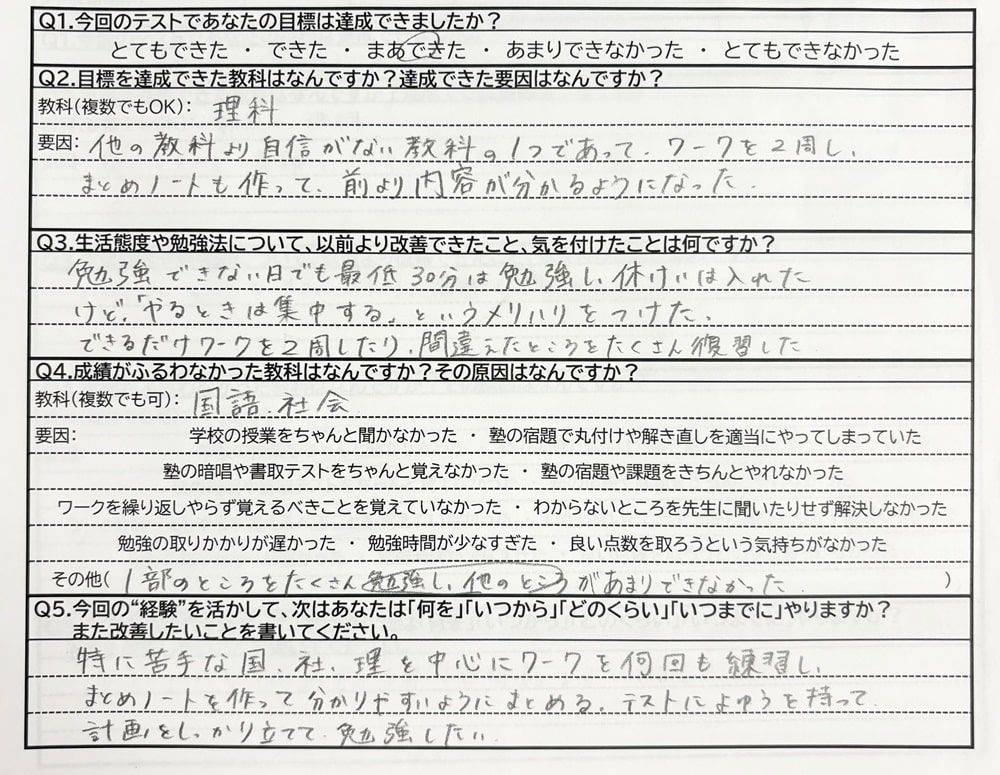 Q1.今回のテストであなたの目標は達成できましたか？
とてもできた ・ できた ・ まあできた ・ あまりできなかった ・ とてもできなかった
Q2.目標を達成できた教科はなんですか？達成できた要因はなんですか？
教科(複数でもOK)： 理科
要因： 他の教科より自信がない教科の1つであって、ワークを2周し、
まとめノートも作って、前より内容が分かるようになった。
Q3.生活態度や勉強法について、以前より改善できたこと、気を付けたことは何ですか？
勉強できない日でも最低30分は勉強し、休けいは入れた
けど、「やるときは集中する」というメリハリをつけた。
できるだけワークを2周したり、間違えたところをたくさん復習した。
Q4.成績がふるわなかった教科はなんですか？その原因はなんですか？
教科(複数でも可)： 国語、社会
要因： 学校の授業をちゃんと聞かなかった ・ 塾の宿題で丸付けや解き直しを適当にやってしまっていた
塾の暗唱や書取テストをちゃんと覚えなかった ・ 塾の宿題や課題をきちんとやれなかった
ワークを繰り返しやらず覚えるべきことを覚えていなかった ・ わからないところを先生に聞いたりせず解決しなかった
勉強の取りかかりが遅かった ・ 勉強時間が少なすぎた ・ 良い点数を取ろうという気持ちがなかった
その他( 1部のところをたくさん勉強し、他のところがあまりできなかった )
Q5.今回の“経験”を活かして、次はあなたは「何を」「いつから」「どのくらい」「いつまでに」やりますか？
また改善したいことを書いてください。
特に苦手な国、社、理を中心にワークを何回も練習し、
まとめノートを作って分かりやすいようにまとめる。テストによゆうを持って
計画をしっかり立てて、勉強したい。